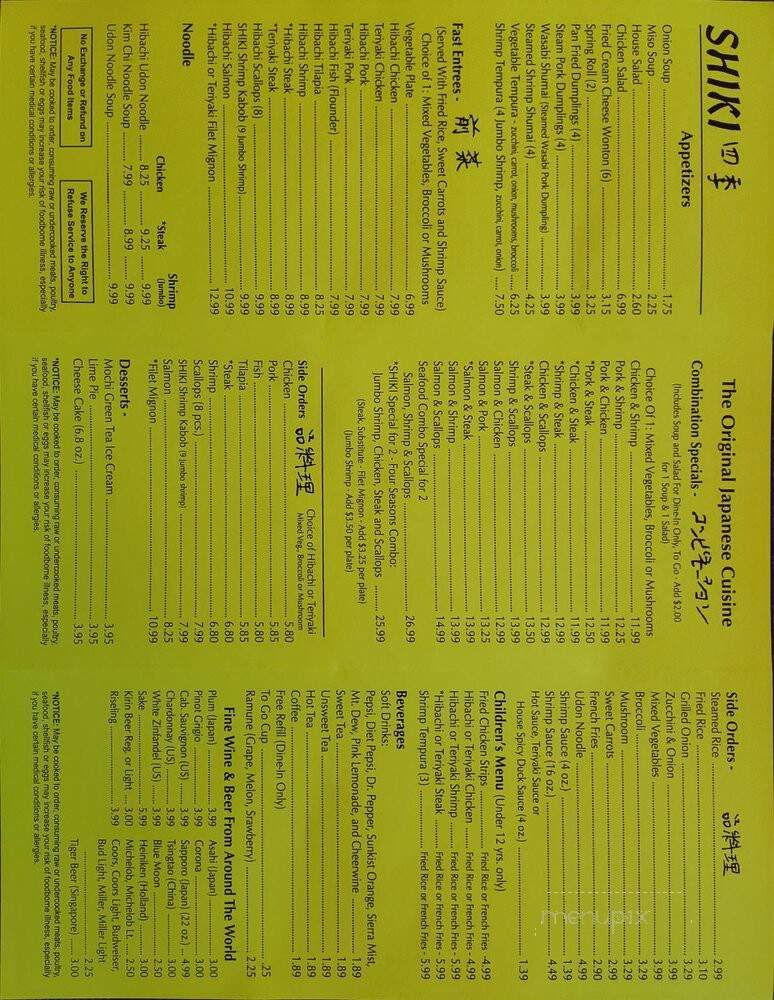 SHIKI 四季
Appetizers
Onion Soup 1.75
Miso Soup 2.25
House Salad 2.60
Chicken Salad 6.99
Fried Cream Cheese Wonton (6) 3.15
Spring Roll (2) 3.25
Pan Fried Dumplings (4) 3.99
Steam Pork Dumplings (4) 3.99
Wasabi Shumai (Steamed Wasabi Pork Dumpling) 3.99
Steamed Shrimp Shumai (4) 4.25
Vegetable Tempura - zucchini, carrot, onion, mushrooms, broccoli 6.25
Shrimp Tempura (4 Jumbo Shrimp, zucchini, carrot, onion) 7.50
Fast Entrees -
(Served With Fried Rice, Sweet Carrots and Shrimp Sauce)
Choice of 1: Mixed Vegetables, Broccoli or Mushrooms
Vegetable Plate 6.99
Hibachi Chicken 7.99
Teriyaki Chicken 7.99
Hibachi Pork 7.99
Teriyaki Pork 7.99
Hibachi Fish (Flounder) 7.99
Hibachi Tilapia 8.25
Hibachi Shrimp 8.99
*Hibachi Steak 8.99
*Teriyaki Steak 8.99
Hibachi Scallops (8) 9.99
SHIKI Shrimp Kabob (9 Jumbo Shrimp) 9.99
Hibachi Salmon 10.99
*Hibachi or Teriyaki Filet Mignon 12.99
Noodle
Chicken *Steak Shrimp (Jumbo)
Hibachi Udon Noodle 8.25 9.25 9.99
Kim Chi Noodle Soup 7.99 8.99 9.99
Udon Noodle Soup 9.99
No Exchange or Refund on
Any Food Items
We Reserve the Right to
Refuse Service to Anyone
*NOTICE: May be cooked to order, consuming raw or undercooked meats, poultry,
seafood, shellfish or eggs may increase your risk of foodborne illness, especially
if you have certain medical conditions or allergies.
The Original Japanese Cuisine
Combination Specials - コンビネーション
(Includes Soup and Salad For Dine-In Only, To Go - Add $2.00
for 1 Soup & 1 Salad)
Choice Of 1: Mixed Vegetables, Broccoli or Mushrooms
Chicken & Shrimp 11.99
Pork & Shrimp 12.25
Pork & Chicken 11.99
*Pork & Steak 12.50
*Chicken & Steak 11.99
*Shrimp & Steak 12.99
Chicken & Scallops 12.99
*Steak & Scallops 13.50
Shrimp & Scallops 13.99
Salmon & Chicken 12.99
Salmon & Pork 13.25
*Salmon & Steak 13.99
Salmon & Shrimp 13.99
Salmon & Scallops 14.99
Seafood Combo Special for 2
Salmon, Shrimp & Scallops 26.99
*SHIKI Special for 2 - Four Seasons Combo:
Jumbo Shrimp, Chicken, Steak and Scallops 25.99
(Steak, Substitute - Filet Mignon - Add $3.25 per plate)
(Jumbo Shrimp - Add $3.50 per plate)
Side Orders 品料理 Choice of Hibachi or Teriyaki
Mixed Veg., Broccoli or Mushroom
Chicken 5.80
Pork 5.85
Fish 5.80
Tilapia 5.85
*Steak 6.80
Shrimp 6.80
Scallops (8 pcs.) 7.99
SHIKI Shrimp Kabob (9 Jumbo shrimp) 7.99
Salmon 8.25
*Filet Mignon 10.99
Desserts -
Mochi Green Tea Ice Cream 3.95
Lime Pie 3.95
Cheese Cake (6.8 oz.) 3.95
*NOTICE: May be cooked to order, consuming raw or undercooked meats, poultry,
seafood, shellfish or eggs may increase your risk of foodborne illness, especially
if you have certain medical conditions or allergies.
Side Orders - 品料理
Steamed Rice 2.99
Fried Rice 3.10
Grilled Onion 3.29
Zucchini & Onion 3.99
Mixed Vegetables 3.99
Broccoli 3.29
Mushroom 3.29
Sweet Carrots 2.99
French Fries 2.90
Udon Noodle 4.99
Shrimp Sauce (4 oz.) 1.39
Shrimp Sauce (16 oz.) 4.49
Hot Sauce, Teriyaki Sauce or
House Spicy Duck Sauce (4 oz.) 1.39
Children's Menu (Under 12 yrs. only)
Fried Chicken Strips Fried Rice or French Fries - 4.99
Hibachi or Teriyaki Chicken Fried Rice or French Fries - 4.99
Hibachi or Teriyaki Shrimp Fried Rice or French Fries - 5.99
*Hibachi or Teriyaki Steak Fried Rice or French Fries - 5.99
Shrimp Tempura (3) Fried Rice or French Fries - 5.99
Beverages
Soft Drinks:
Pepsi, Diet Pepsi, Dr. Pepper, Sunkist Orange, Sierra Mist,
Mt. Dew, Pink Lemonade, and Cheerwine 1.89
Sweet Tea 1.89
Unsweet Tea 1.89
Hot Tea 1.89
Coffee 1.89
Free Refill (Dine-In Only)
To Go Cup .25
Ramune (Grape, Melon, Srawberry) 2.25
Fine Wine & Beer From Around The World
Plum (Japan) 3.99 Asahi (Japan) 3.00
Pinot Grigio 3.99 Corona 3.00
Cab. Sauvignon (US) 3.99 Sapporo (Japan) (22 oz.) 4.99
Chardonnay (US) 3.99 Tsingtao (China) 3.00
White Zinfandel (US) 3.99 Blue Moon 2.50
Sake 5.99 Heiniken (Holland) 3.00
Kirin Beer Reg. or Light 3.00 Michelob, Michelob Lt. 2.50
Riseling 3.99 Coors, Coors Light, Budweiser,
Bud Light, Miller, Miller Light
2.25
Tiger Beer (Singapore) 3.00
*NOTICE: May be cooked to order, consuming raw or undercooked meats, poultry,
seafood, shellfish or eggs may increase your risk of foodborne illness, especially
if you have certain medical conditions or allergies.
menupix